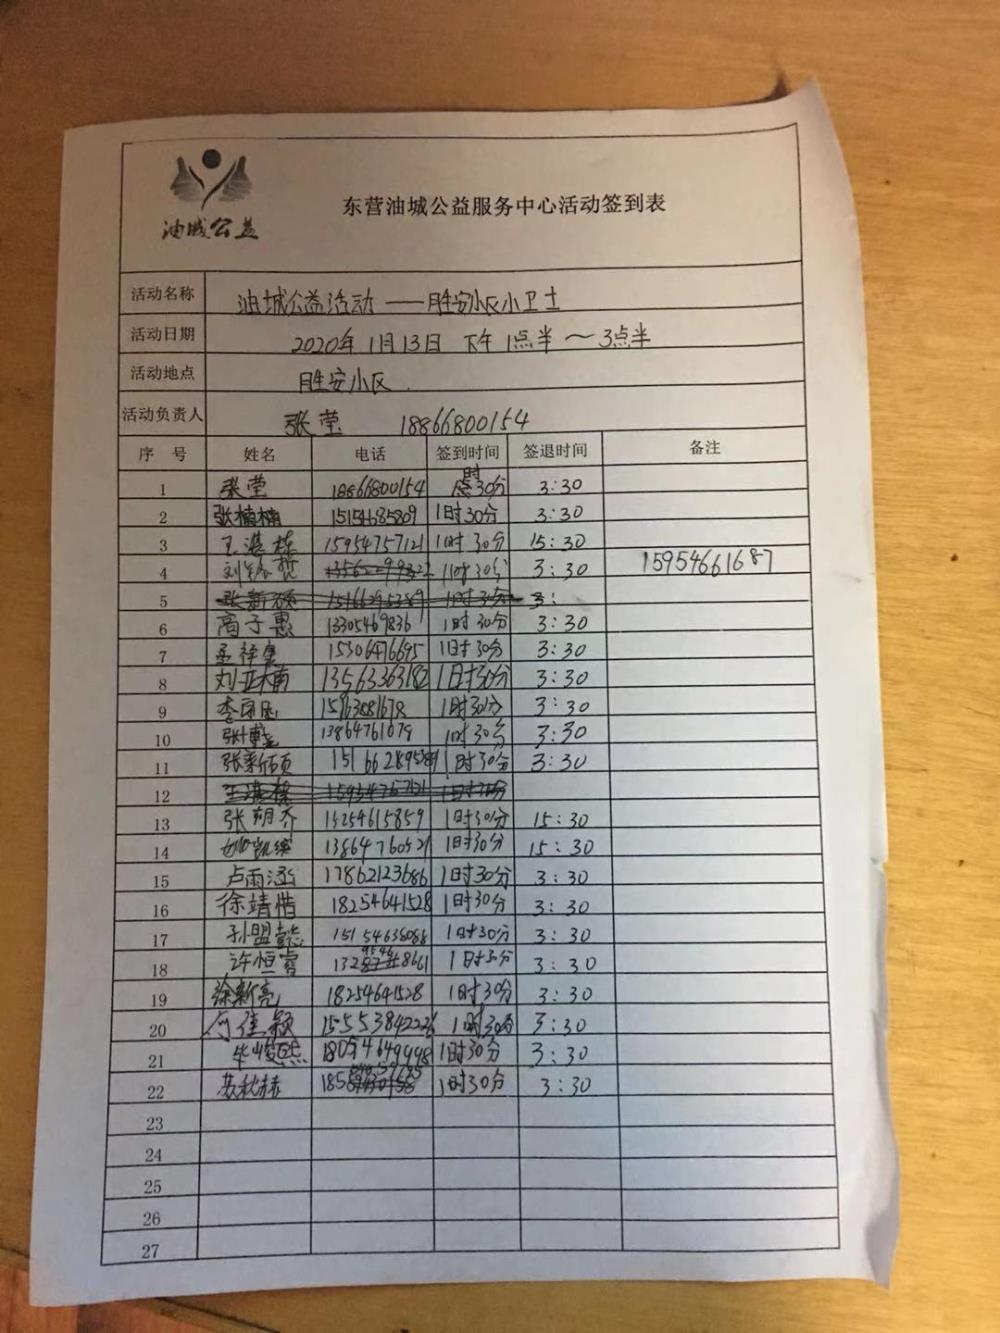 油城公益
东营油城公益服务中心活动签到表
活动名称 油城公益活动——胜安小区小卫士
活动日期 2020年1月13日 下午1点半~3点半
活动地点 胜安小区.
活动负责人 张莹 18866800154
序号 姓名 电话 签到时间 签退时间 备注
1 张莹 18866800154 1时30分 3:30
2 张楠楠 15154685809 1时30分 3:30
3 王湛栋 15954757121 1时30分 15:30
4 刘 哲 1时30分 3:30 15954661687
5 张新硕 1时30分 3:
6 高子惠 13305469836 1时30分 3:30
7 15306476695 1时30分 3:30
8 刘亚楠 13563363182 1时30分 3:30
9 李 1时30分 3:30
10 张 13864761079 1时30分 3:30
11 张新硕 15166289538 1时30分 3:30
12 王湛栋 15954757121 1时30分
13 张朔齐 13254615859 1时30分 15:30
14 姚凯缤 13864760521 1时30分 15:30
15 卢雨涵 17862123686 1时30分 3:30
16 徐靖惜 18254641528 1时30分 3:30
17 孙盟懿 15154638088 1时30分 3:30
18 许恒睿 1时30分 3:30
19 徐新亮 18254641528 1时30分 3:30
20 何佳颖 1时30分 3:30
21 毕 熙 18054649998 1时30分 3:30
22 苏秋赫 1时30分 3:30
23
24
25
26
27